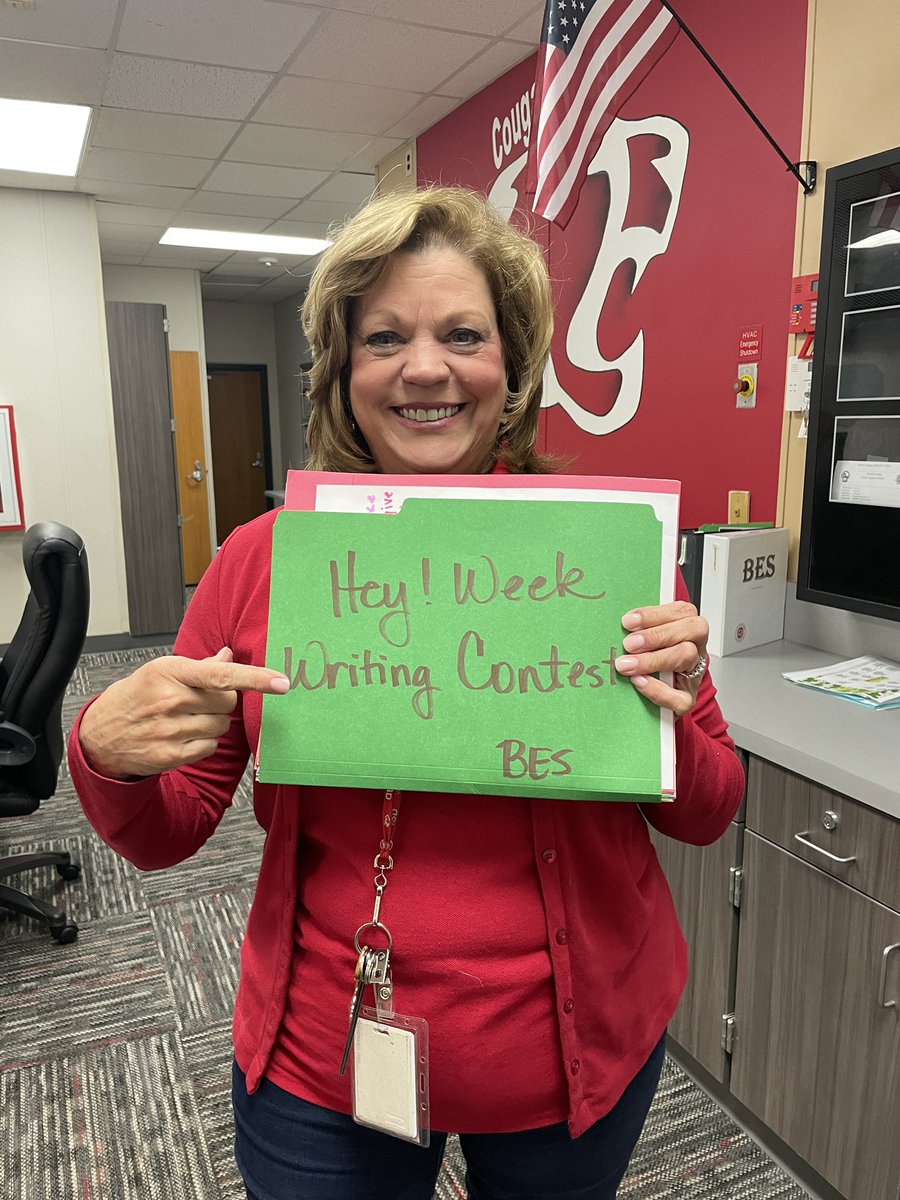 Hey! Week
Writing Contest
BES
BES
HVAC
Emergency
Shutdown